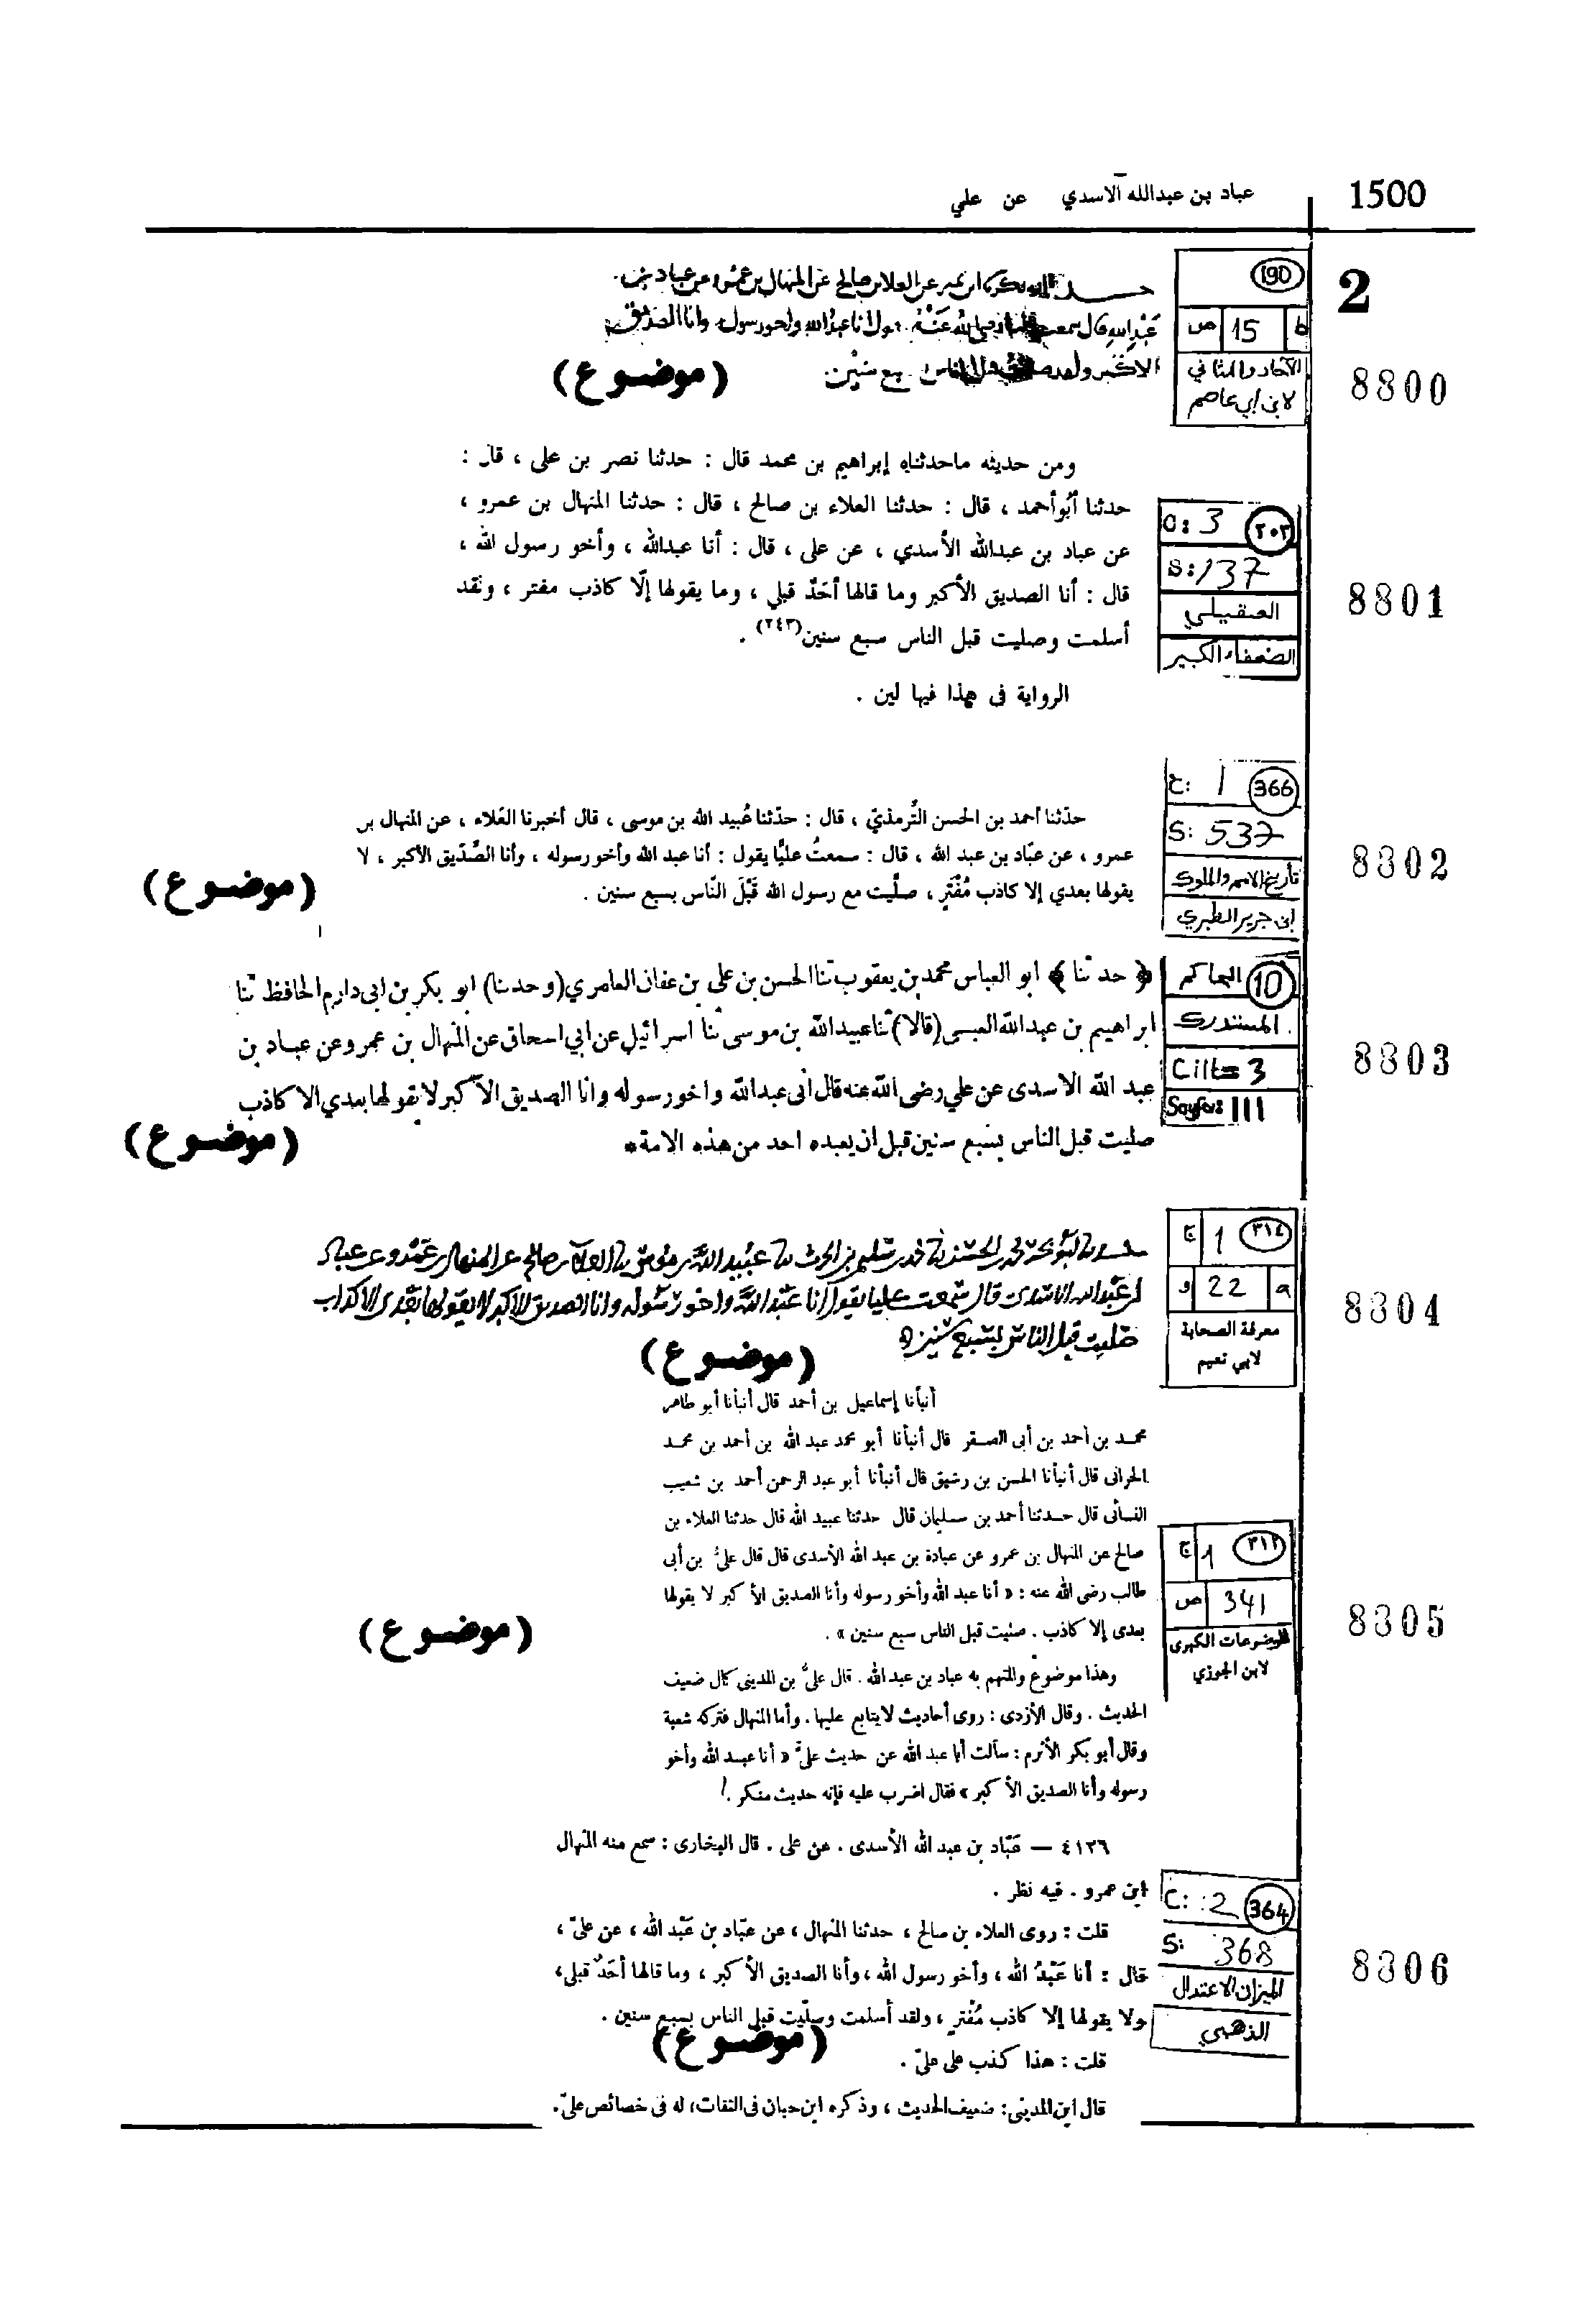 1500
عباد بن عبدالله الآسدي عن علي
2
190
ص 15 b
الآحاد والمثاني
لابن أبي عاصم
8800
ابن نمير عن العلا بن صالح عن المنهال بن عمرو عن عباد بن
عبد الله قال سمعت عليا رضي الله عنه يقول انا عبد الله واخو رسوله وانا الصديق
الاكبر ولقد صليت قبل الناس بسبع سنين
(موضوع)
ومن حديثه ماحدثناه إبراهيم بن محمد قال : حدثنا نصر بن على ، قال :
حدثنا أبوأحمد ، قال : حدثنا العلاء بن صالح ، قال : حدثنا المنهال بن عمرو ،
عن عباد بن عبدالله الأسدي ، عن على ، قال : أنا عبدالله ، وأخو رسول الله ،
قال : أنا الصديق الأكبر وما قالها أحَدٌ قبلي ، وما يقولها إلّا كاذب مفتر ، ولقد
أسلمت وصليت قبل الناس سبع سنين(٢٤٣) .
الرواية فى هذا فيها لين .
C: 3 ٢٠٣
S: 137
العقيلي
الضعفاء الكبير
8801
ج: 1 366
S: 537
تأريخ الامم والملوك
ابن جرير الطبري
8802
حدّثنا أحمد بن الحسن التُّرمذيّ ، قال : حدّثنا عُبيد الله بن موسى ، قال أخبرنا العَلاء ، عن المنهال بر
عمرو ، عن عبّاد بن عبد الله ، قال : سمعتُ عليًّا يقول : أنا عبد الله وأخو رسوله ، وأنا الصِّدّيق الأكبر ، لا
يقولها بعدي إلا كاذب مُفْتَرٍ ، صلَّيت مع رسول الله قَبْلَ النّاس بسبع سنين .
(موضوع)
الحاكم 10
المستدرك
Cilt= 3
Sayfa: 111
8803
﴿ حدثنا ﴾ ابو العباس محمد بن يعقوب ثنا الحسن بن على بن عفان العامري (وحدثنا) ابو بكر بن ابى دارم الحافظ ثنا
ابراهيم بن عبدالله العبسى (قالا) ثنا عبيدالله بن موسى ثنا اسرائيل عن أبي اسحاق عن المنهال بن عمرو عن عباد بن
عبد الله الاسدى عن علي رضى الله عنه قال انى عبدالله واخو رسوله وانا الصديق الاكبر لا يقولها بعدي الا كاذب
صليت قبل الناس بسبع سنين قبل ان يعبده احد من هذه الامة*
(موضوع)
ج 1 ٣١٤
و 22 a
معرفة الصحابة
لابي نعيم
8804
محمد بن الحسن سليم بن الحرث عبيد الله بن موسى العلا بن صالح عن المنهال بن عمرو عن عباد
بن عبد الله الاسدى قال سمعت عليا يقول أنا عبد الله واخو رسوله وانا الصديق الاكبر لا يقولها بعدى الا كذاب
صليت قبل الناس بسبع سنين
(موضوع)
أنبأنا إسماعيل بن أحمد قال أنبأنا أبو طاهر
محمد بن أحمد بن أبى الصقر قال أنبأنا أبو محمد عبد الله بن أحمد بن محمد
الحرانى قال أنبأنا الحسن بن رشيق قال أنبأنا أبو عبد الرحمن أحمد بن شعيب
النسائى قال حدثنا أحمد بن سليمان قال حدثنا عبيد الله قال حدثنا العلاء بن
صالح عن المنهال بن عمرو عن عبادة بن عبد الله الأسدى قال قال علىُّ بن أبى
طالب رضى الله عنه : « أنا عبد الله وأخو رسوله وأنا الصديق الأكبر لا يقولها
بعدى إلا كاذب . صليت قبل الناس سبع سنين » .
وهذا موضوع والمتهم به عباد بن عبد الله . قال علىُّ بن المدينى كان ضعيف
الحديث . وقال الأزدى : روى أحاديث لا يتابع عليها . وأما المنهال فتركه شعبة
وقال أبو بكر الأثرم : سألت أبا عبد الله عن حديث علىّ « أنا عبد الله وأخو
رسوله وأنا الصديق الأكبر » فقال اضرب عليه فإنه حديث منكر .
ج 1 ٣١٢
ص 341
الموضوعات الكبرى
لابن الجوزي
8805
(موضوع)
٤١٢٦ — عَبّاد بن عبد الله الأسدى . عن على . قال البخارى : سمع منه المنهال
ابن عمرو . فيه نظر .
قلت : روى العلاء بن صالح ، حدثنا المنهال ، عن عبّاد بن عَبْد الله ، عن علىّ ،
قال : أنا عَبْدُ الله ، وأخو رسول الله ، وأنا الصديق الأكبر ، وما قالها أحَدٌ قبلى ،
ولا يقولها إلا كاذب مُفْترٍ ، ولقد أسلمت وصلّيت قبل الناس بسبع سنين .
(موضوع)
قلت : هذا كذب على علىّ .
قال ابن المدينى : ضعيف الحديث ، وذكره ابن حبان فى الثقات ، له فى خصائص علىّ .
C: 2 364
S: 368
الميزان الاعتدال
الذهبي
8806